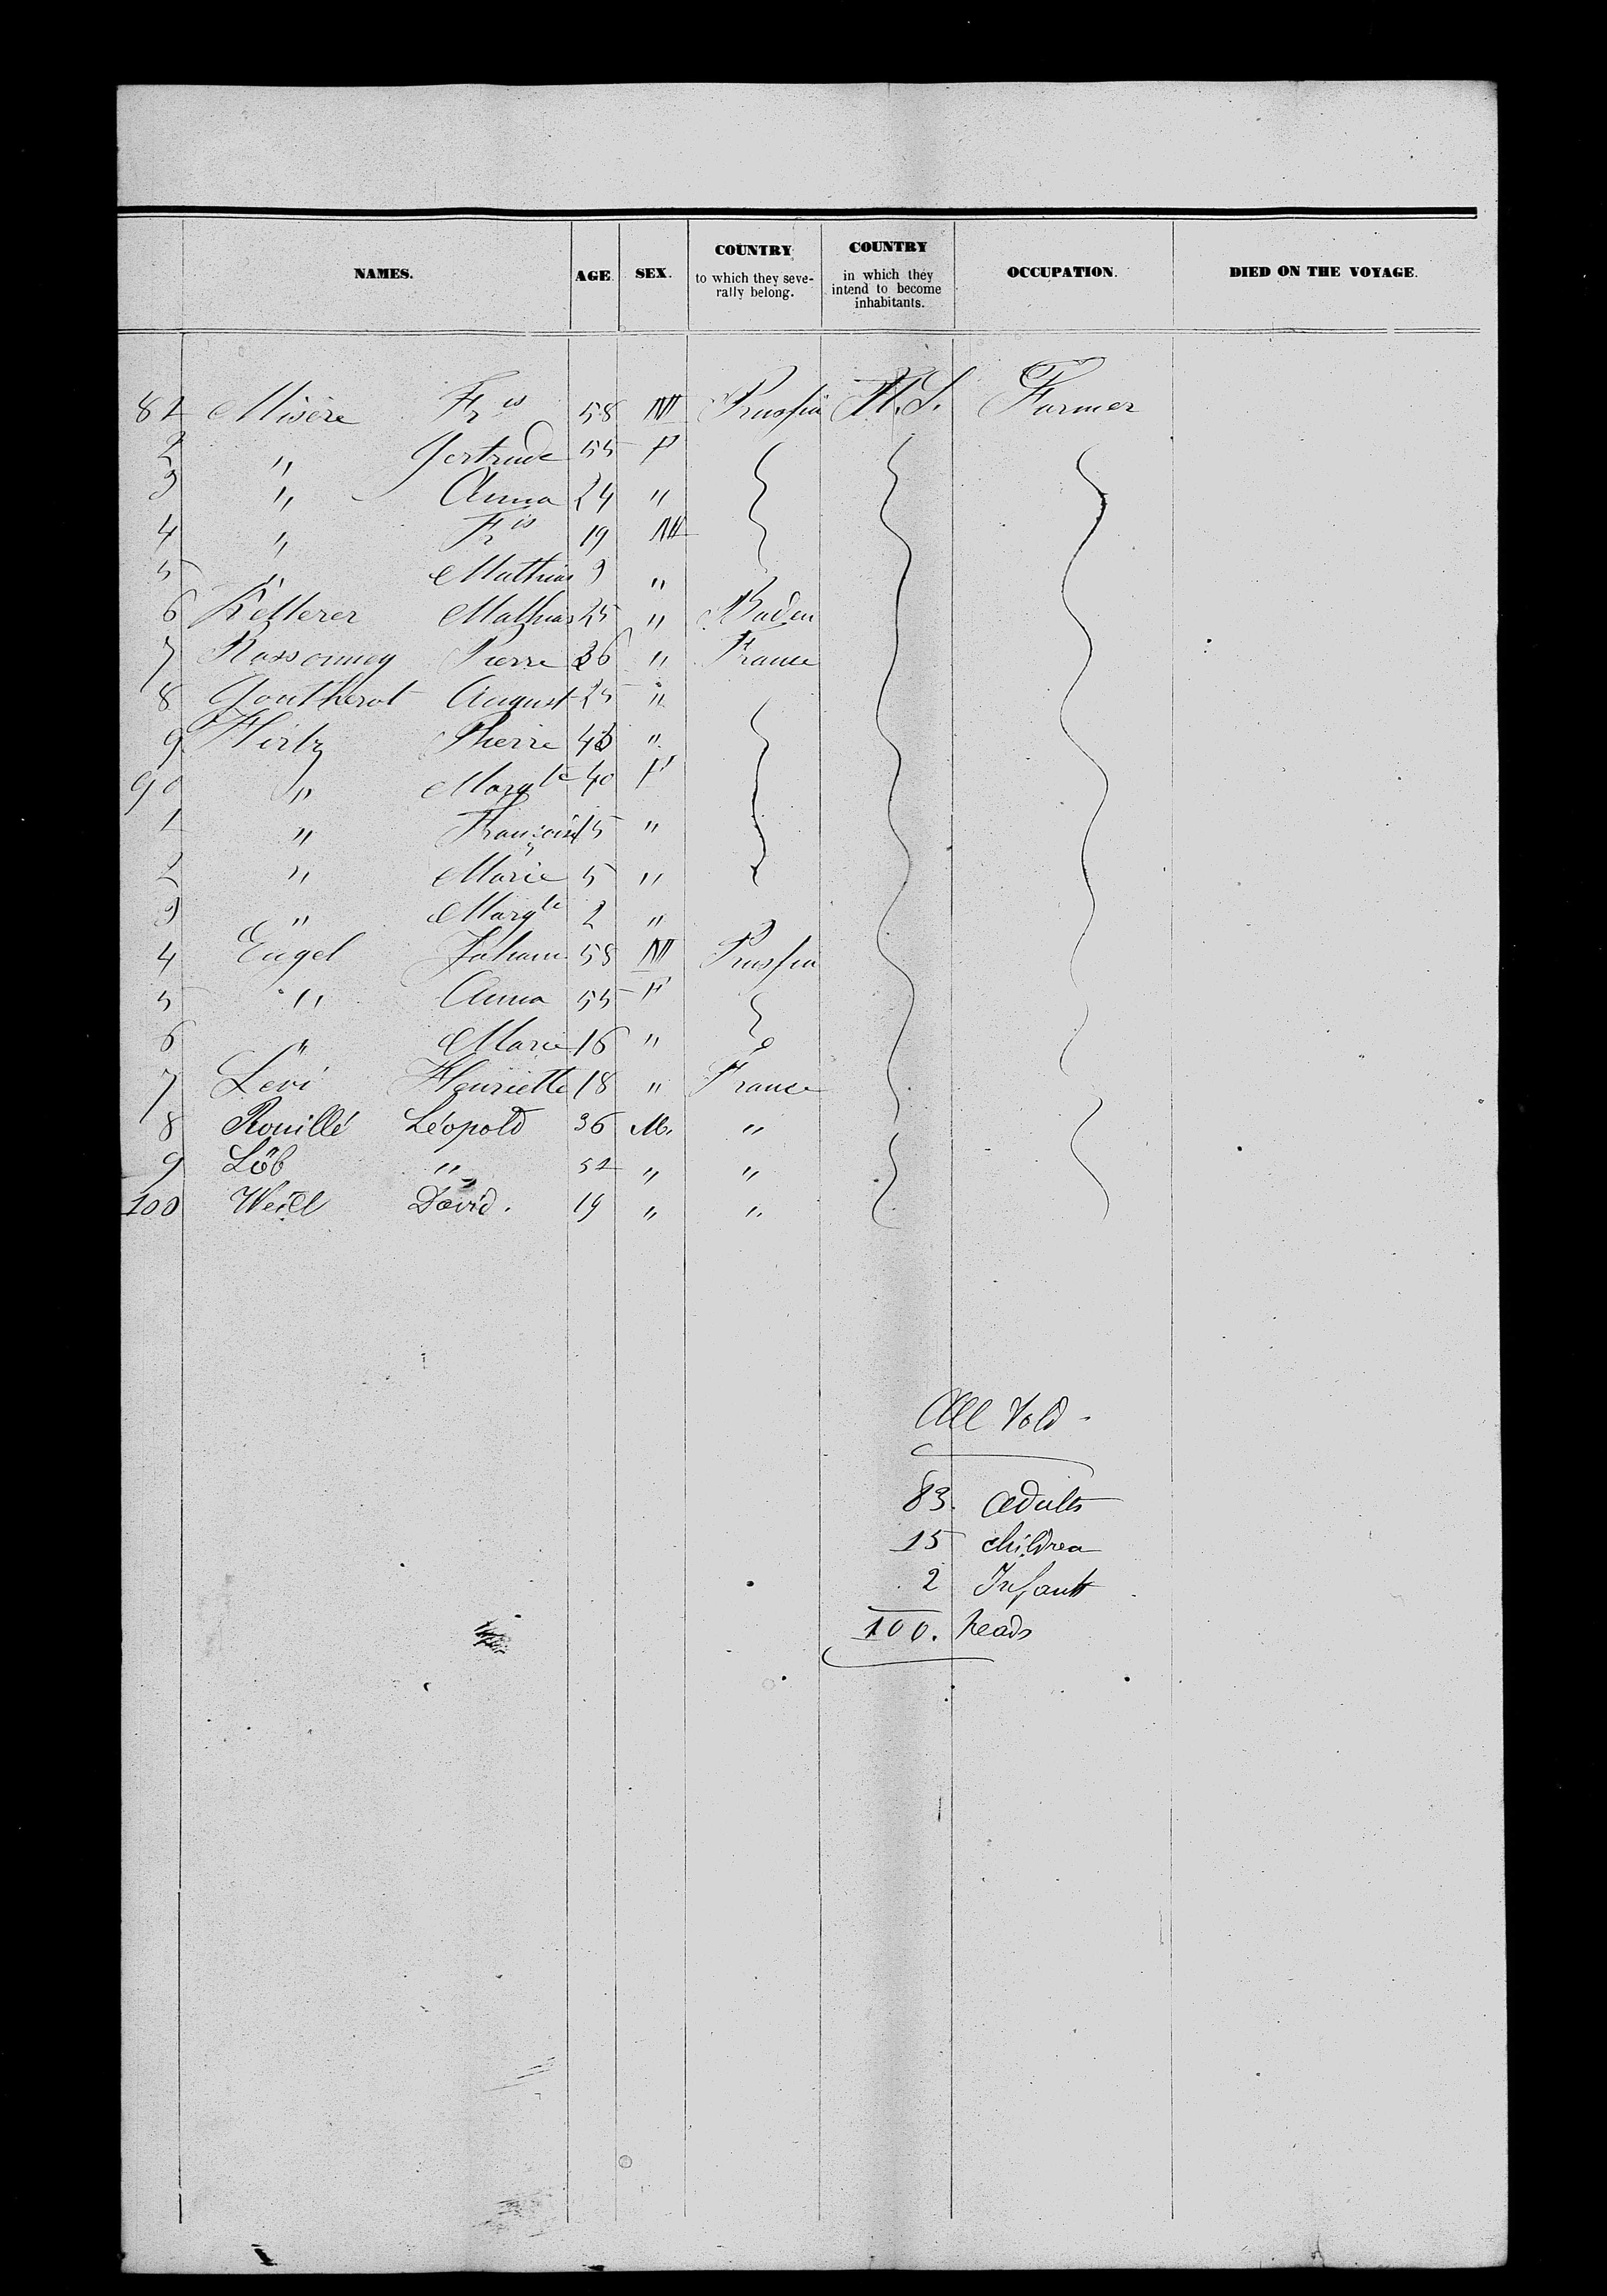 NAMES. AGE. SEX. COUNTRY to which they seve-rally belong. COUNTRY in which they intend to become inhabitants. OCCUPATION. DIED ON THE VOYAGE.
81 Misère Fris 58 M Prussia U.S. Farmer
2 " Gertrude 55 F
3 " Anna 24 "
4 " Fris 19 M
5 " Mathias 9 "
6 Ketterer Mathias 25 " Baden
7 Rassonney Pierre 36 " France
8 Goutherot August 25 "
9 Hirtz Pierre 43 "
90 " Margte 40 F
1 " Françoise 15 "
2 " Marie 5 "
3 " Margte 2 "
4 Engel Johann 58 M Prussia
5 " Anna 55 F
6 " Marie 16 "
7 Levi Henriette 18 " France
8 Rouillé Léopold 36 M. "
9 Löb " 51 " "
100 Weill David. 19 " "
All told
83. adults
15 children
2 Infants
100. heads